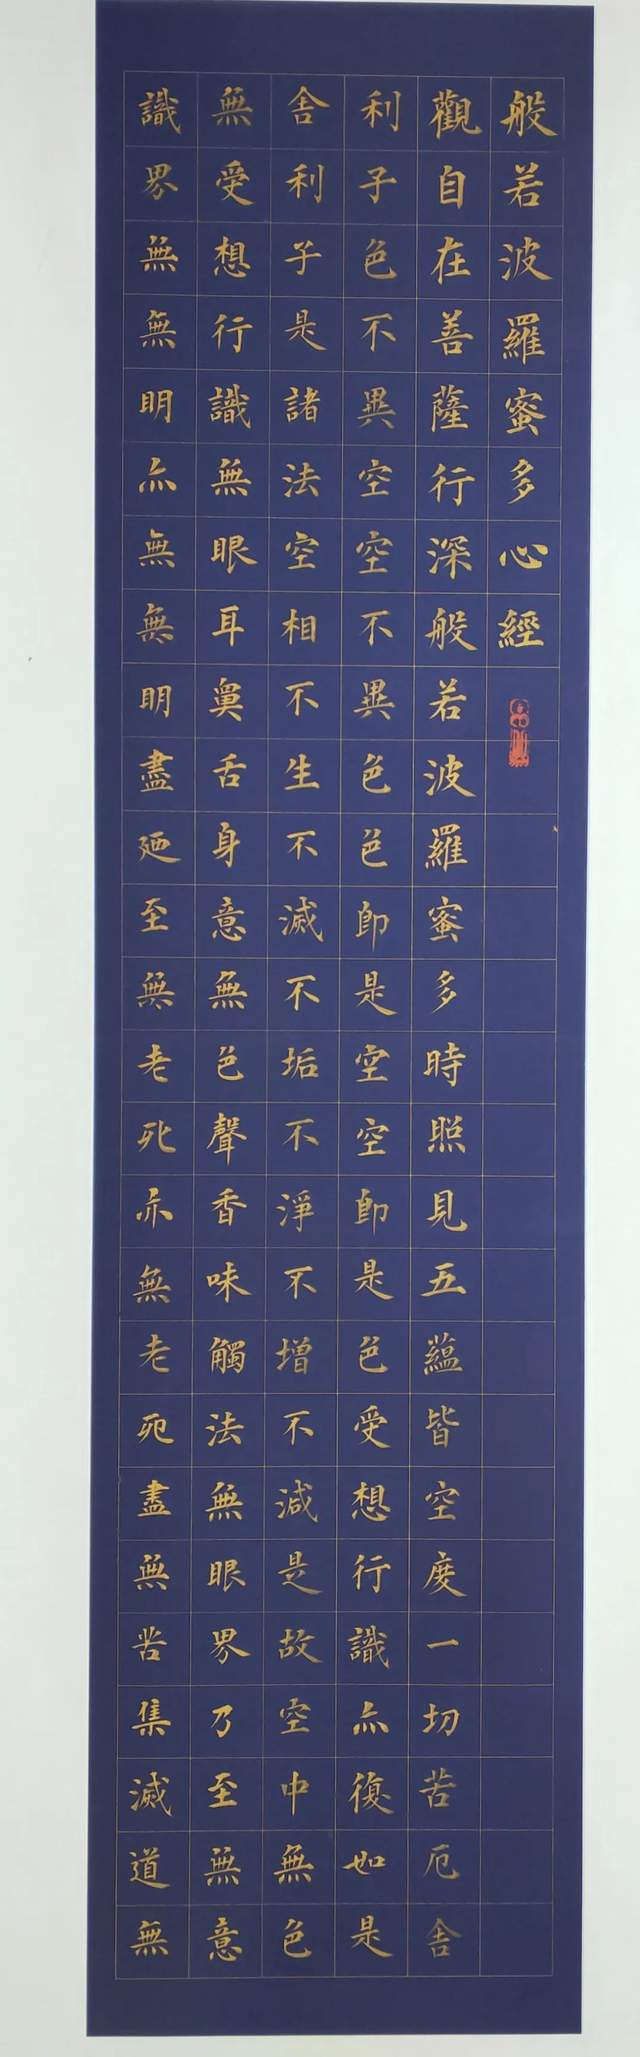 般若波羅蜜多心經
觀自在善薩行深般若波羅蜜多時照見五蘊皆空度一切苦厄舍
利子色不異空空不異色色即是空空即是色受想行識亦復如是
舍利子是諸法空相不生不滅不垢不淨不增不減是故空中無色
無受想行識無眼耳鼻舌身意無色聲香味觸法無眼界乃至無意
識界無無明亦無無明盡廼至無老死亦無老死盡無苦集滅道無